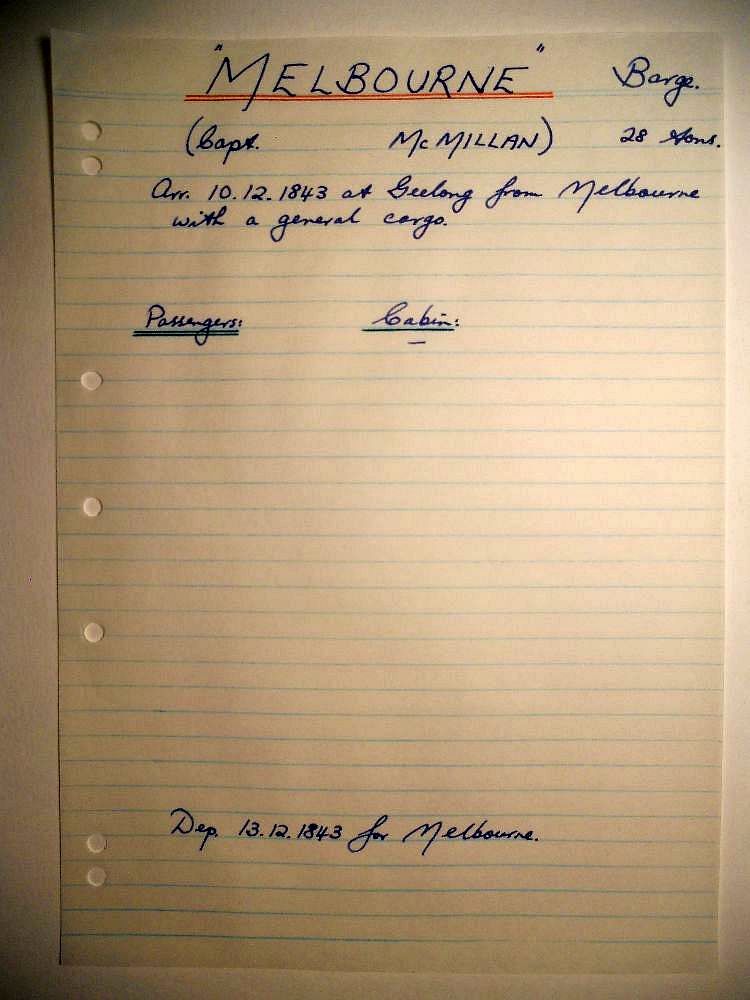 "MELBOURNE" Barge.
(Capt. McMILLAN) 28 tons.
Arr. 10.12.1843 at Geelong from Melbourne
with a general cargo.
Passengers: Cabin:
—
Dep. 13.12.1843 for Melbourne.